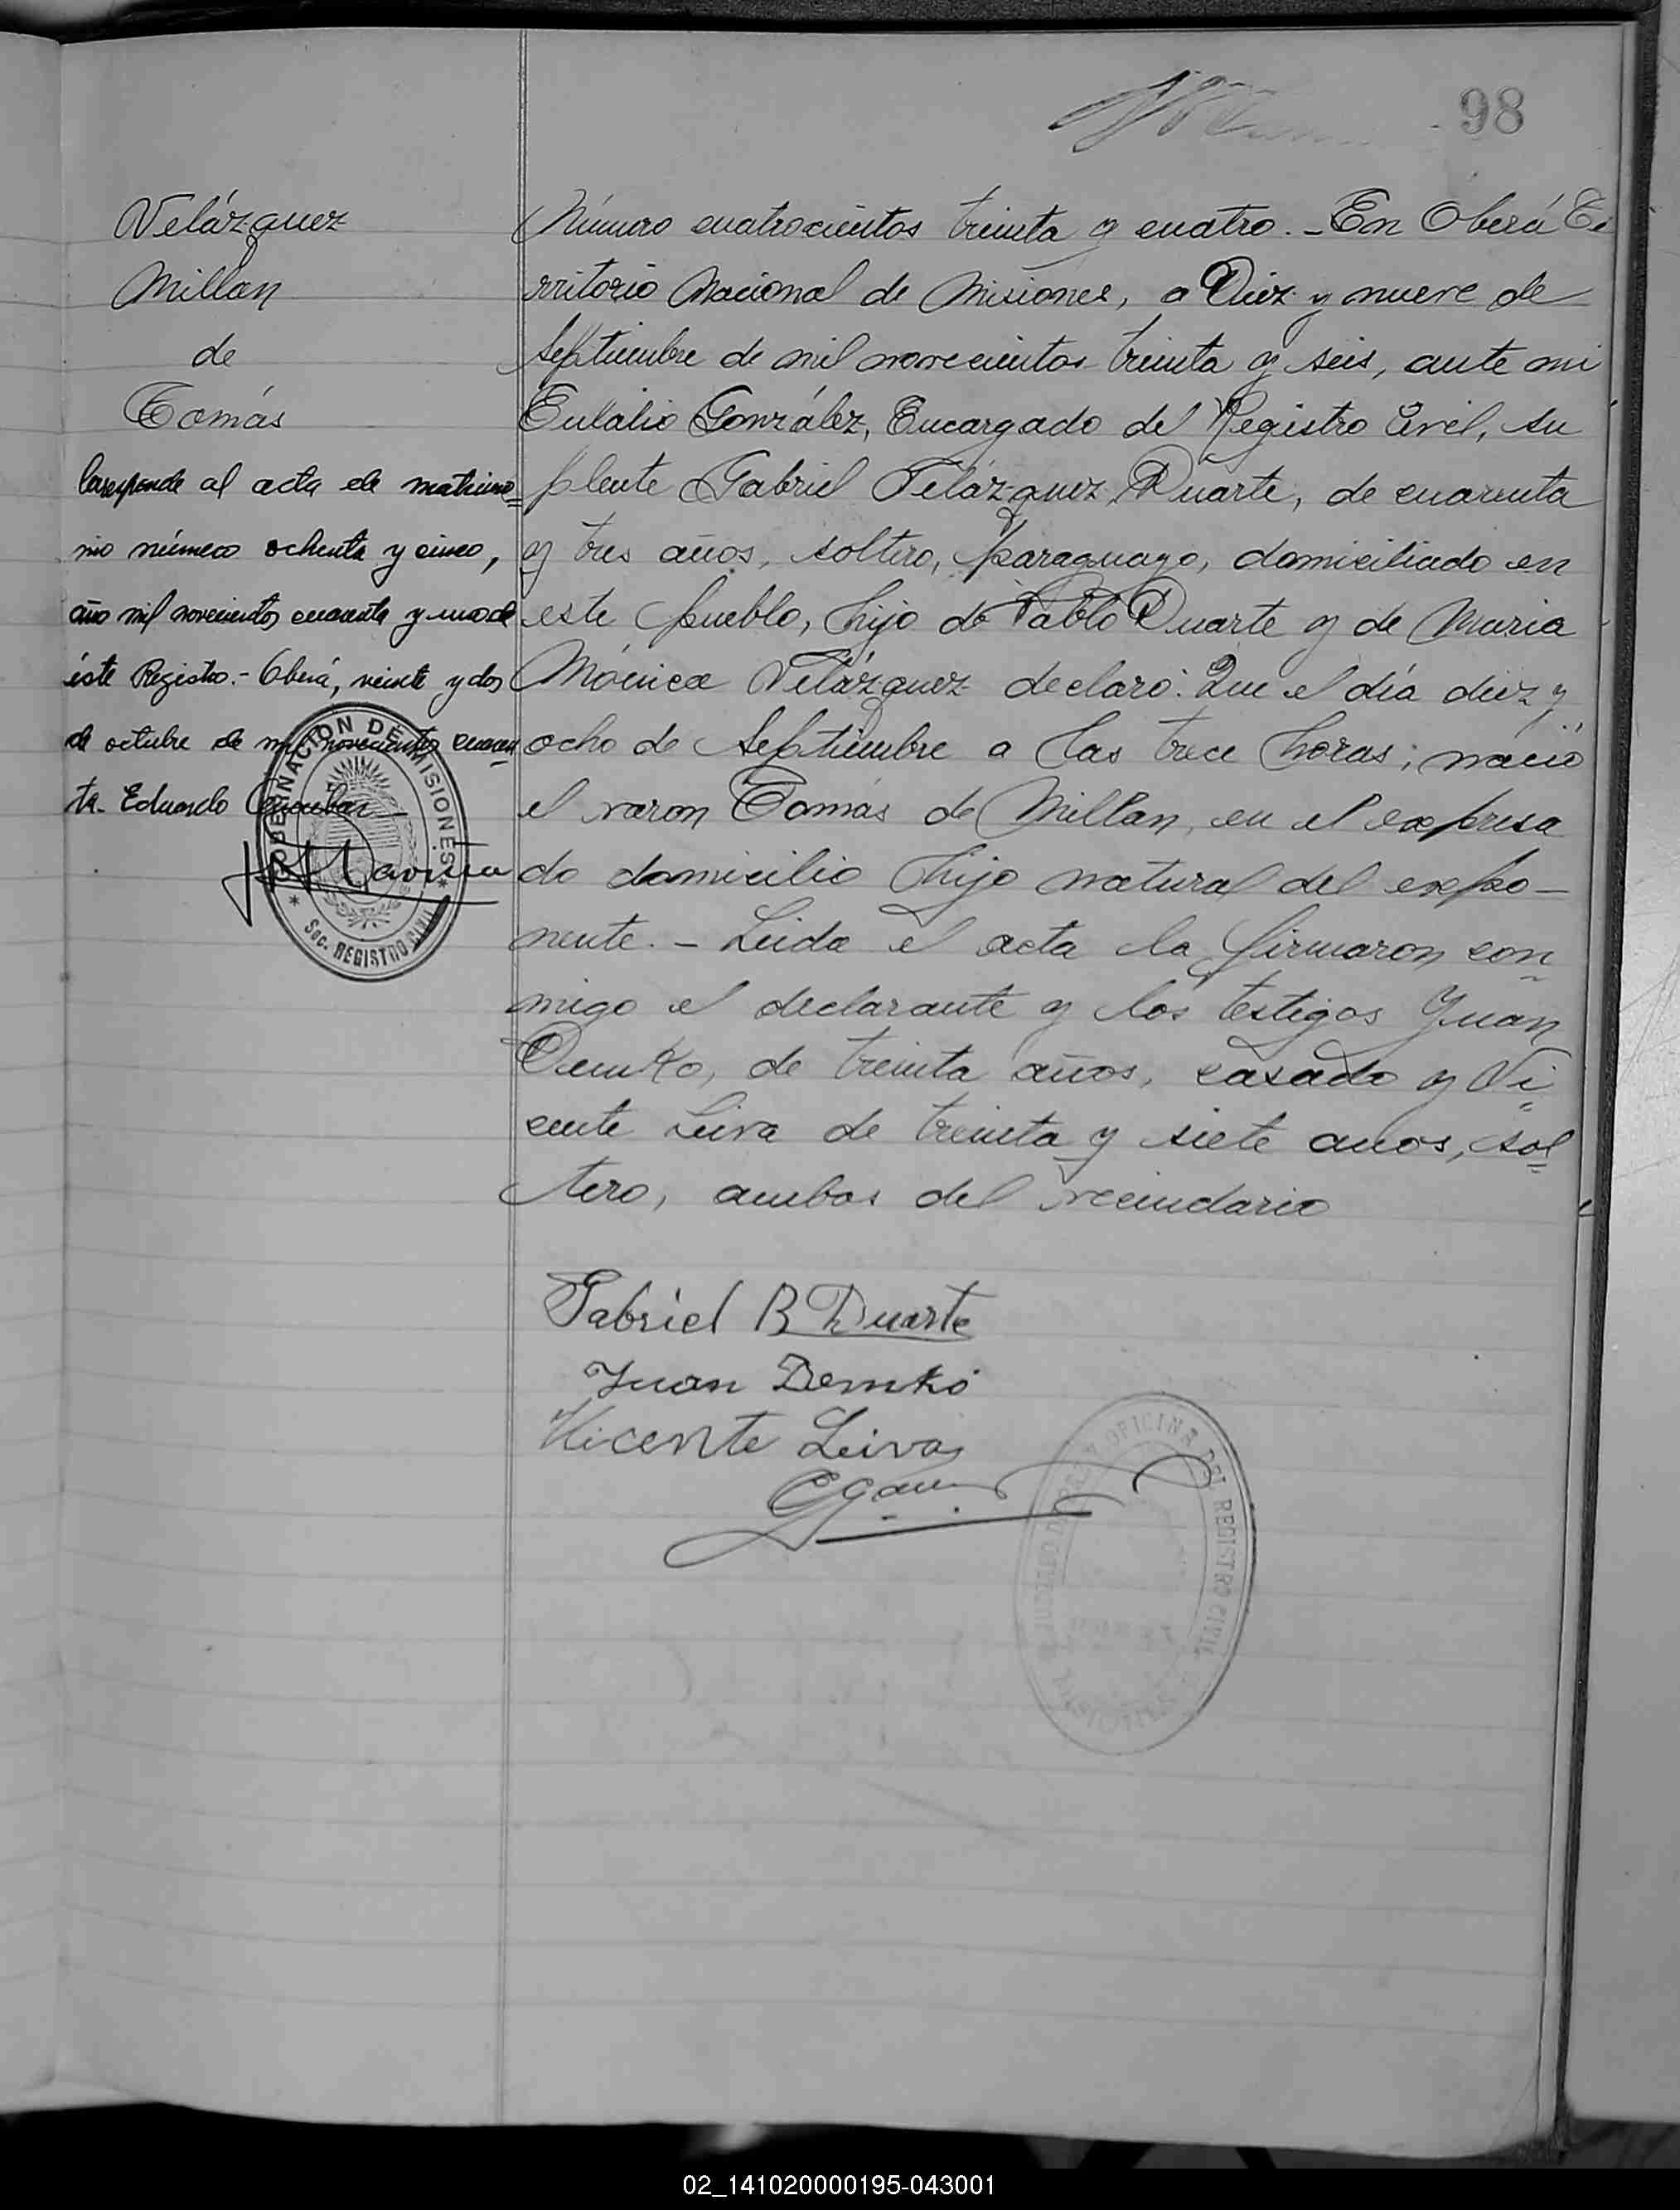 98
Velázquez
Millan
de
Tomás
Corresponde al acta de matrimo=
nio número ochenta y cinco,
año mil novecientos cuarenta y uno de
éste Registro.- Oberá, veinte y dos
de octubre de mil novecientos cuaren
ta. Eduardo
GOBERNACION DE MISIONES
Sec. REGISTRO CIVIL
Número cuatrocientos treinta y cuatro.- En Oberá Te
rritorio Nacional de Misiones, a Diez y nueve de
Septiembre de mil novecientos treinta y seis, ante mi
Eulalio González, Encargado del Registro Civil, su
plente Gabriel Velázquez Duarte, de cuarenta
y tres años, soltero, paraguayo, domiciliado en
este pueblo, hijo de Pablo Duarte y de Maria
Mónica Velázquez declaró: Que el día diez y
ocho de Septiembre a las trece horas; nació
el varon Tomás de Millan, en el expresa
do domicilio hijo natural del expo-
nente.- Leida el acta la firmaron con
migo el declarante y los testigos Juan
Demko, de treinta años, casado y Vi
cente Leiva de treinta y siete anos, sol
tero, ambos del vecindario
Gabriel B Duarte
Juan Demkó
Vicente Leiva
OFICINA DEL REGISTRO CIVIL
MISIONES
02_141020000195-043001